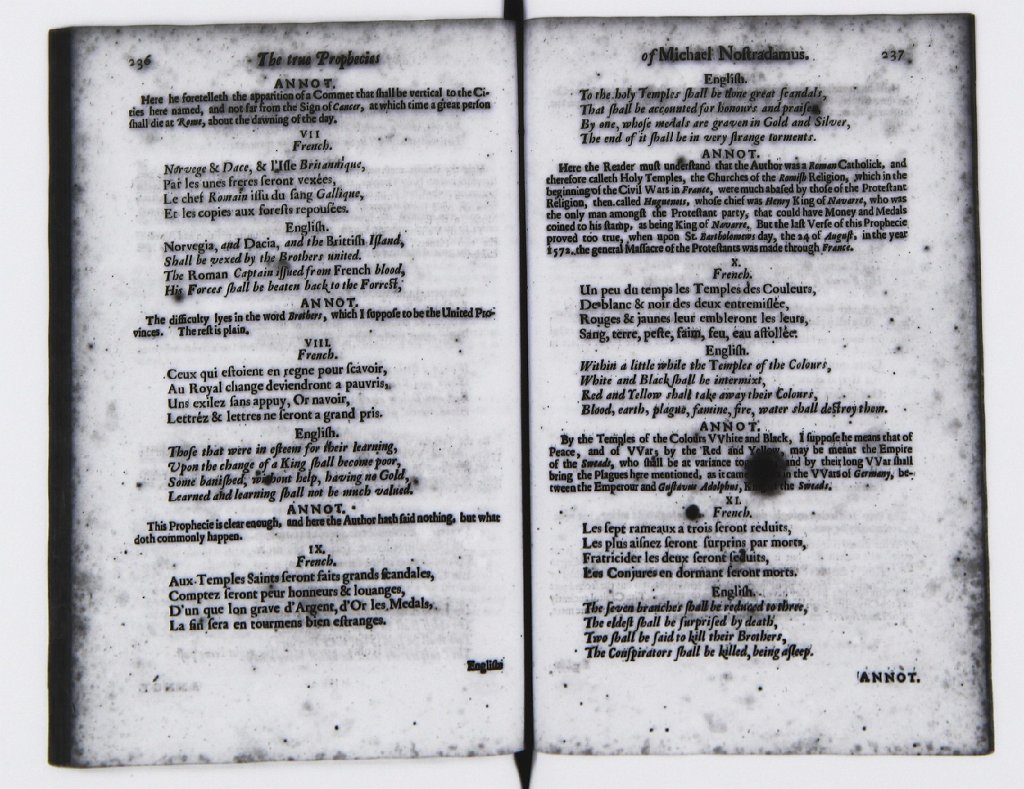 236 The true Prophecies
ANNOT.
Here he foretelleth the apparition of a Commet that shall be vertical to the Ci-
ties here named, and not far from the Sign of Cancer, at which time a great person
shall die at Rome, about the dawning of the day.
VII
French.
Norvege & Dace, & l'Isle Britannique,
Par les unes freres seront vexées,
Le chef Romain issu du sang Gallique,
Et les copies aux forests repousées.
English.
Norvegia, and Dacia, and the Brittish Island,
Shall be vexed by the Brothers united.
The Roman Captain issued from French blood,
His Forces shall be beaten back to the Forrest,
ANNOT.
The difficulty lyes in the word Brothers, which I suppose to be the United Pro-
vinces. The rest is plain.
VIII.
French.
Ceux qui estoient en regne pour scavoir,
Au Royal change deviendront a pauvris,
Uns exilez sans appuy, Or navoir,
Lettréz & lettres ne seront a grand pris.
English.
Those that were in esteem for their learning,
Upon the change of a King shall become poor,
Some banished, without help, having no Gold,
Learned and learning shall not be much valued.
ANNOT.
This Prophecie is clear enough, and here the Author hath said nothing, but what
doth commonly happen.
IX.
French.
Aux Temples Saints seront faits grands scandales,
Comptez seront peur honneurs & louanges,
D'un que lon grave d'Argent, d'Or les Medals,
La fin sera en tourmens bien estranges.
English
of Michael Nostradamus. 237
English.
To the holy Temples shall be done great scandals,
That shall be accounted for honours and praises,
By one, whose medals are graven in Gold and Silver,
The end of it shall be in very strange torments.
ANNOT.
Here the Reader must understand that the Author was a Roman Catholick, and
therefore calleth Holy Temples, the Churches of the Romish Religion, which in the
beginning of the Civil Wars in France, were much abased by those of the Protestant
Religion, then called Huguenots, whose chief was Henry King of Navarre, who was
the only man amongst the Protestant party, that could have Money and Medals
coined to his stamp, as being King of Navarre. But the last Verse of this Prophecie
proved too true, when upon St. Bartholomews day, the 24 of August, in the year
1572. the general Massacre of the Protestants was made through France.
X.
French.
Un peu du temps les Temples des Couleurs,
De blanc & noir des deux entremislée,
Rouges & jaunes leur embleront les leurs,
Sang, terre, peste, faim, feu, eau affollée.
English.
Within a little while the Temples of the Colours,
White and Black shall be intermixt,
Red and Yellow shall take away their Colours,
Blood, earth, plague, famine, fire, water shall destroy them.
ANNOT.
By the Temples of the Colours VVhite and Black, I suppose he means that of
Peace, and of VVar, by the Red and Yellow, may be meant the Empire
of the Sweads, who shall be at variance and by their long VVar shall
bring the Plagues here mentioned, as it came in the VVars of Germany, be-
tween the Emperour and Gustavus Adolphus, the Sweads.
XI.
French.
Les sept rameaux a trois seront reduits,
Les plus aisnez seront surprins par mors,
Fratricider les deux seront seduits,
Les Conjures en dormant seront morts.
English.
The seven branches shall be reduced to three,
The eldest shall be surprised by death,
Two shall be said to kill their Brothers,
The Conspirators shall be killed, being asleep.
ANNOT.